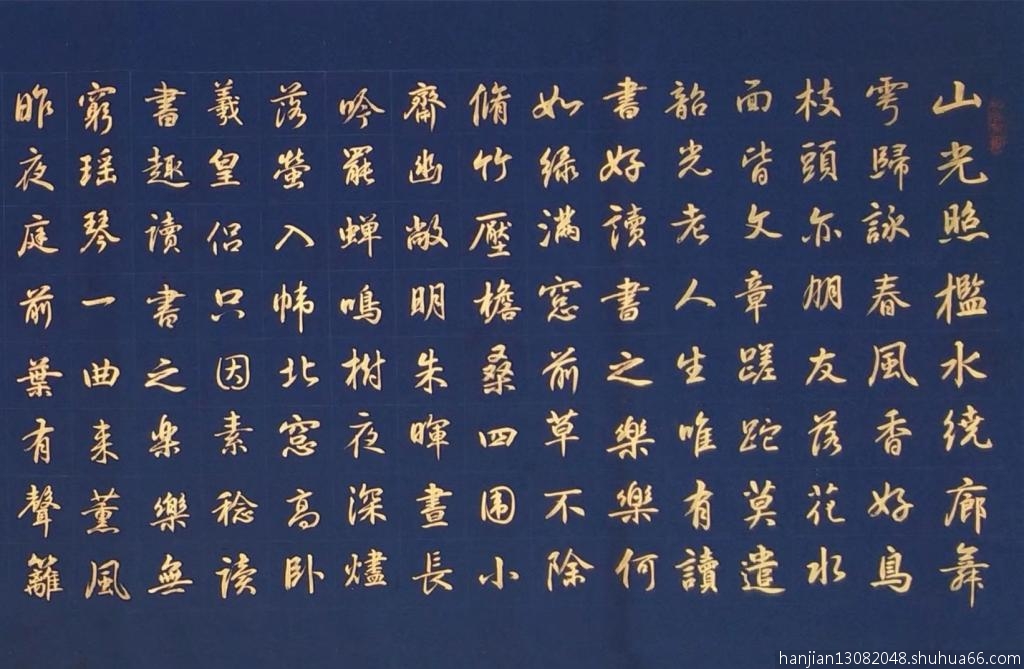 山光照檻水繞廊舞
雩歸詠春風香好鳥
枝頭亦朋友落花水
面皆文章蹉跎莫遣
韶光老人生唯有讀
書好讀書之樂樂何
如綠滿窓前草不除
脩竹壓檐桑四围小
齋幽敞明朱暉晝長
吟罷蝉鳴樹夜深燼
落螢入幃北窓高卧
羲皇侣只因素稔读
書趣读書之楽樂無
窮瑶琴一曲来薰風
昨夜庭前葉有聲籬
hanjian13082048.shuhua66.com